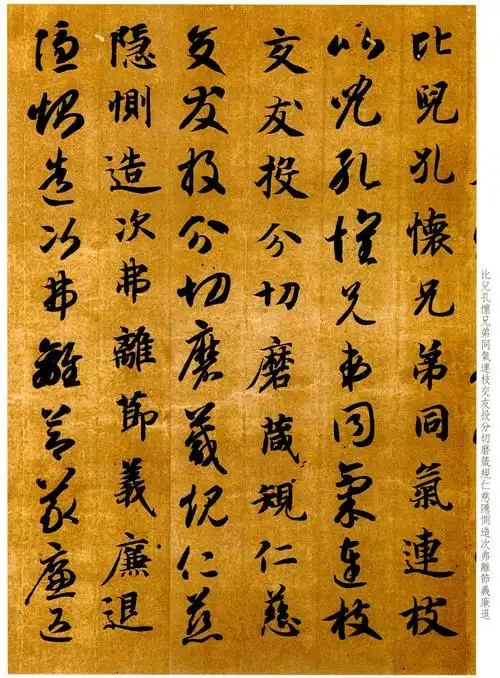 比兒孔懷兄弟同氣連枝
比兒孔懷兄弟同氣連枝
交友投分切磨葴規仁慈
交友投分切磨葴規仁慈
隱惻造次弗離節義廉退
隱惻造次弗離節義廉退
比兒孔懷兄弟同氣連枝交友投分切磨箴規仁慈隱惻造次弗離節義廉退